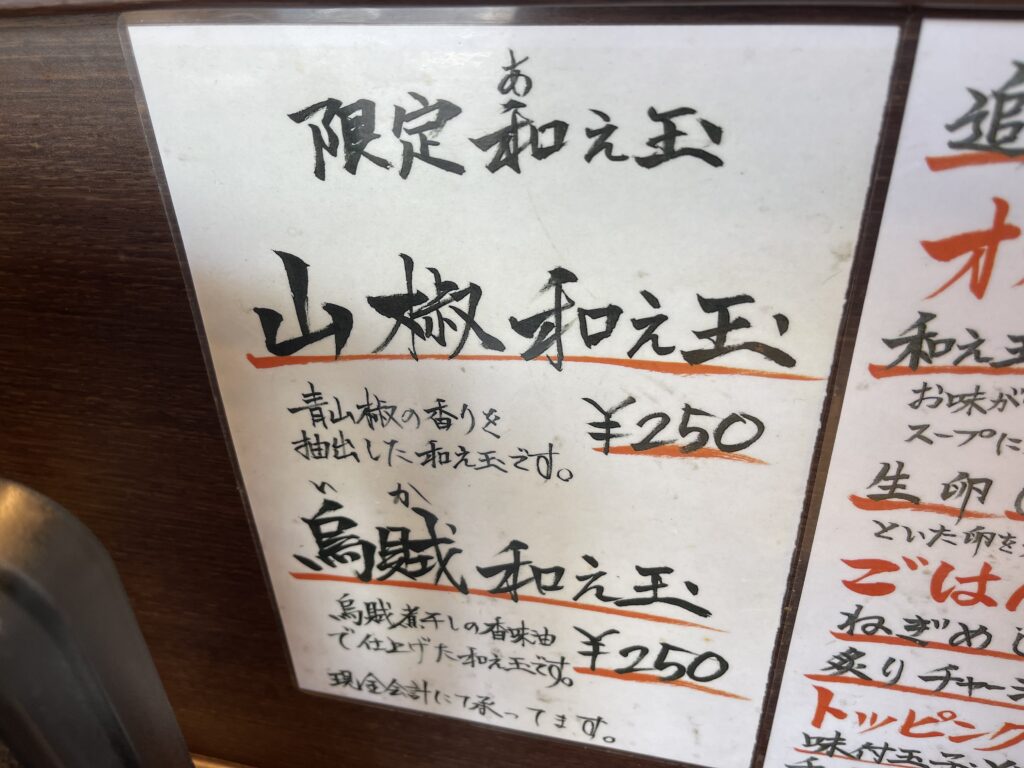 あ
限定 和え玉
山椒 和え玉
青山椒の香りを
抽出した和え玉です。
¥250
いか
烏賊 和え玉
烏賊煮干しの香味油
で仕上げた和え玉です。
¥250
現金会計にて承ってます。
追
オ
和え玉
お味が
スープに
生卵
といた卵を
ごはん
ねぎめし
炙りチャーシ
トッピング
味付玉子